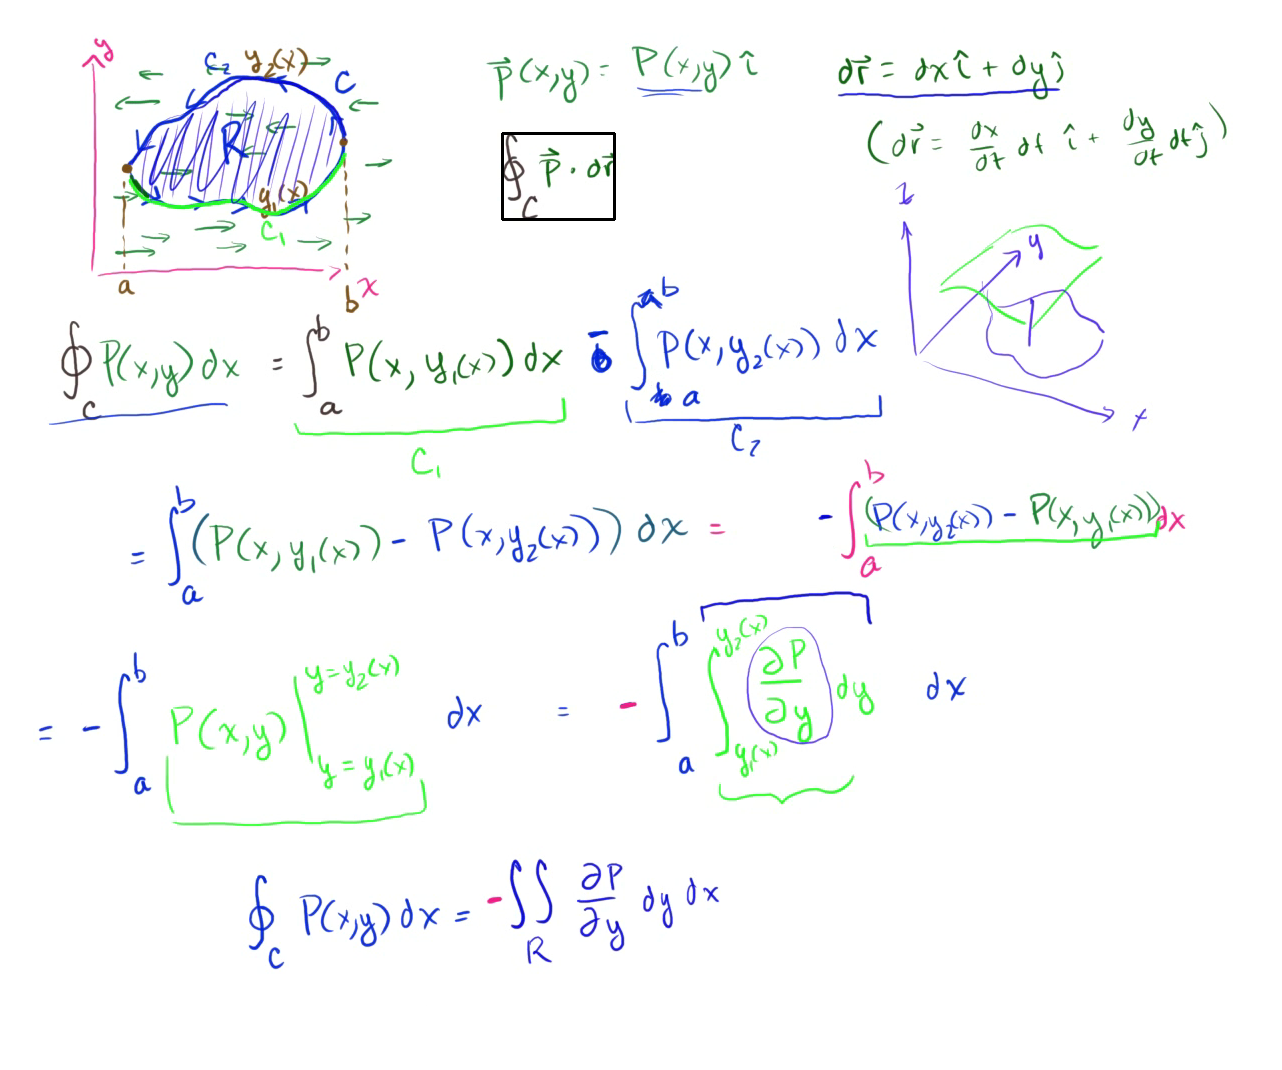 y
C₂ y₂(x) C
R
y₁(x)
C₁
a b x
p⃗(x,y) = P(x,y) î
dr⃗ = dx î + dy ĵ
(dr⃗ = dx/dt dt î + dy/dt dt ĵ)
∮_C p⃗ · dr⃗
z
y
x
∮_C P(x,y) dx = ∫_a^b P(x, y₁(x)) dx - ∫_a^b P(x, y₂(x)) dx
C₁ C₂
= ∫_a^b (P(x, y₁(x)) - P(x, y₂(x))) dx = - ∫_a^b (P(x, y₂(x)) - P(x, y₁(x))) dx
= - ∫_a^b P(x,y) |_{y = y₁(x)}^{y = y₂(x)} dx = - ∫_a^b ∫_{y₁(x)}^{y₂(x)} ∂P/∂y dy dx
∮_C P(x,y) dx = - ∬_R ∂P/∂y dy dx